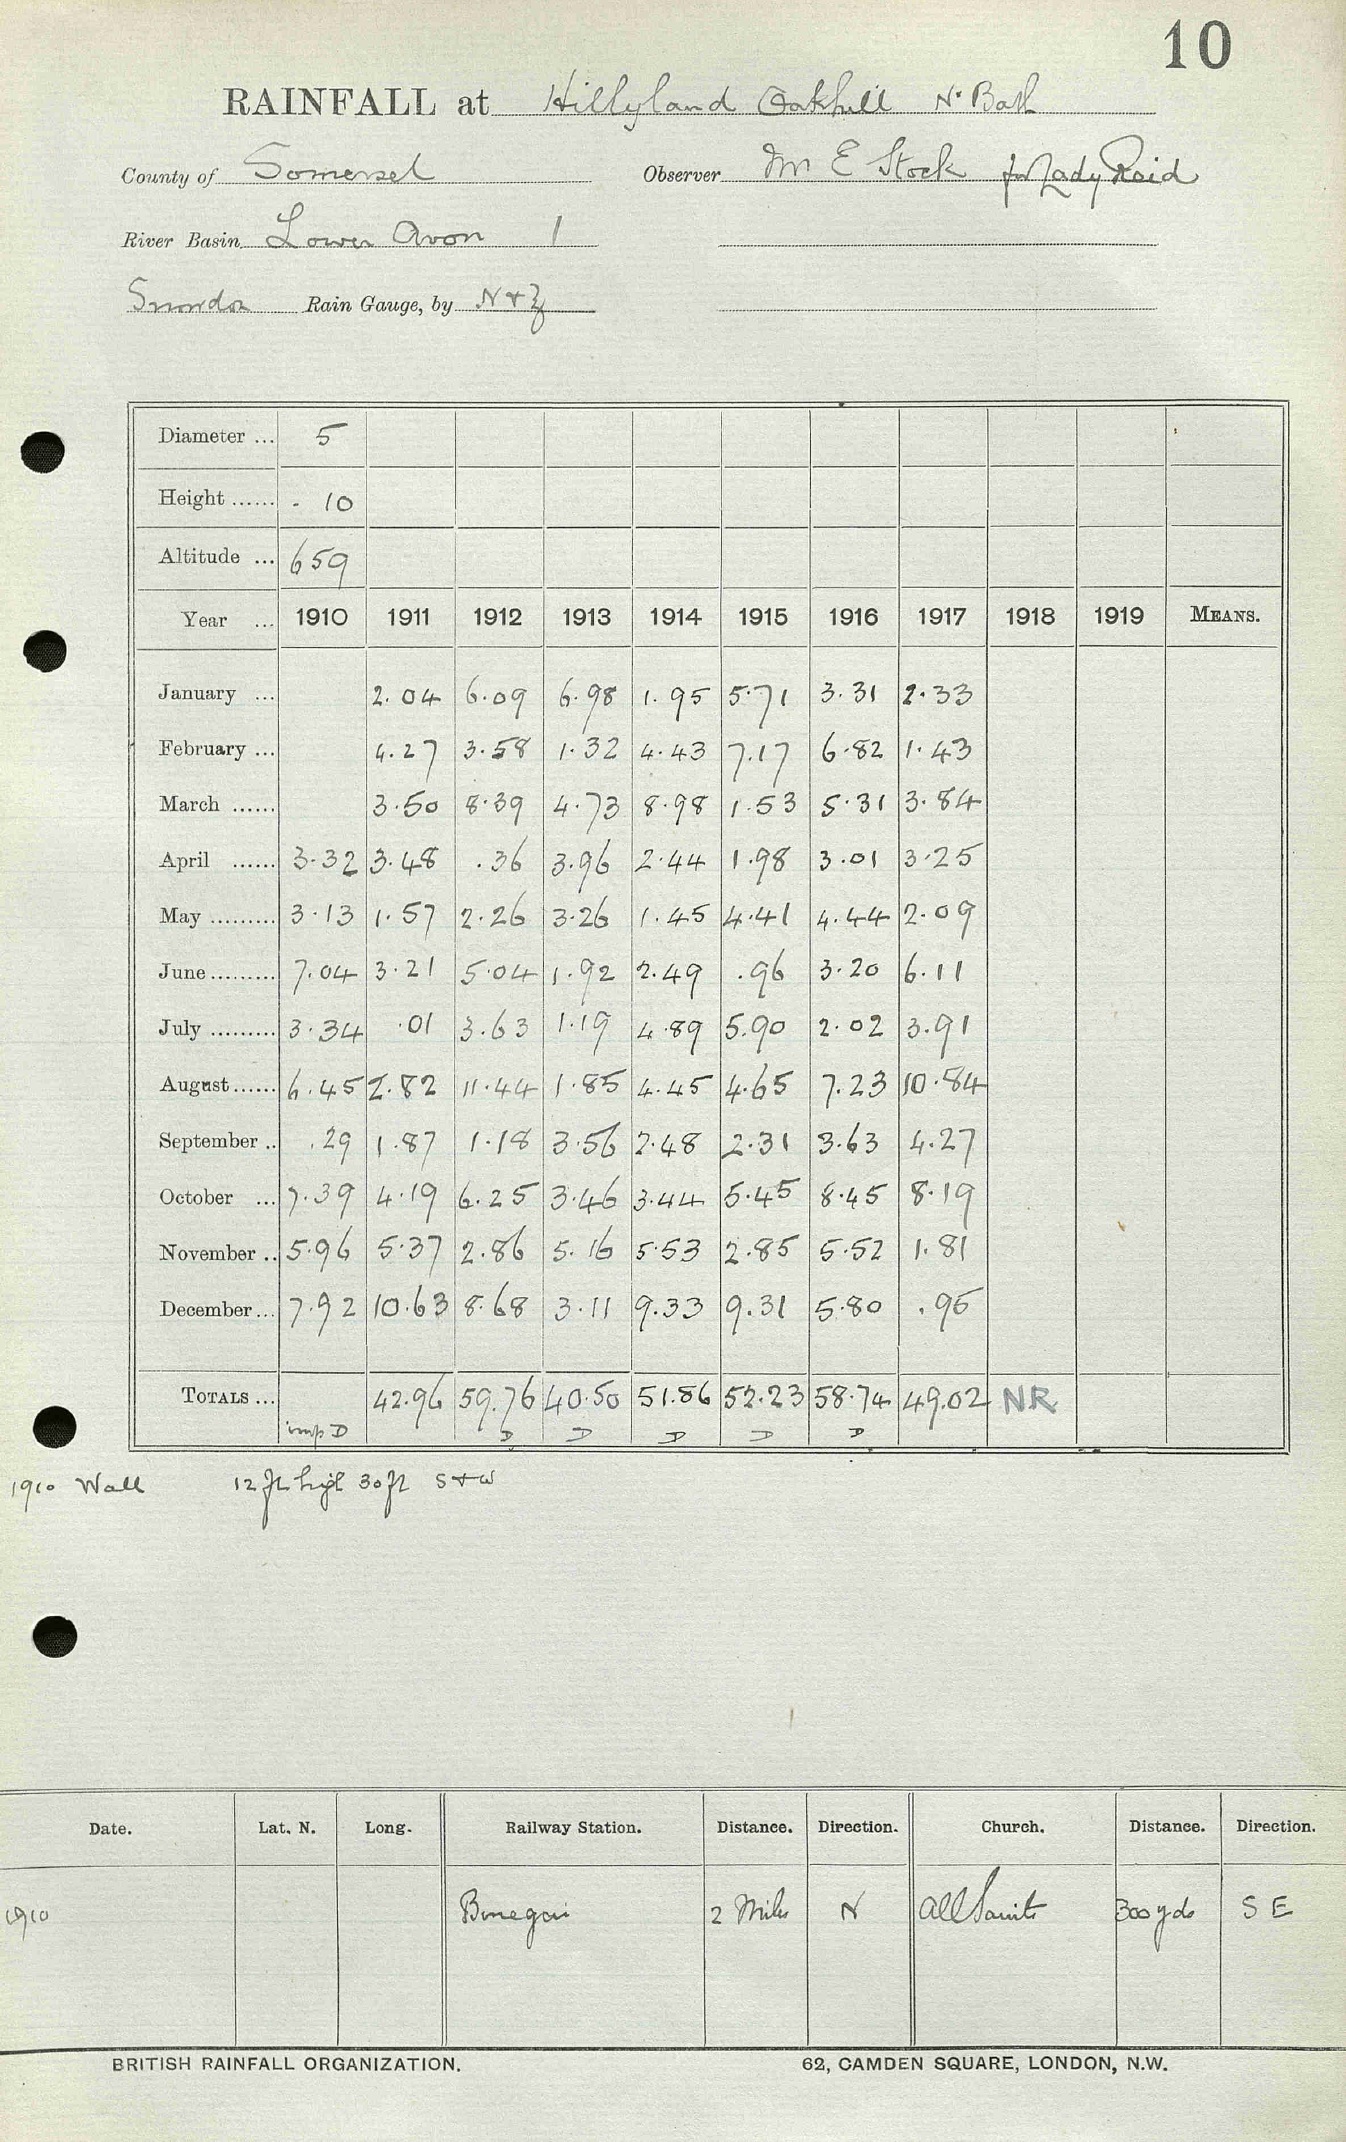 10
RAINFALL at Hillyland Oakhill Nr Bath
County of Somerset Observer Mr E Stock for Lady Reid
River Basin Lower Avon 1
Snowdon Rain Gauge, by N+Z
Diameter ... 5
Height ...... - 10
Altitude ... 659
Year ... 1910 1911 1912 1913 1914 1915 1916 1917 1918 1919 MEANS.
January ... 2.04 6.09 6.98 1.95 5.71 3.31 2.33
February ... 4.27 3.58 1.32 4.43 7.17 6.82 1.43
March ...... 3.50 8.39 4.73 8.98 1.53 5.31 3.84
April ...... 3.32 3.48 .36 3.96 2.44 1.98 3.01 3.25
May ......... 3.13 1.57 2.26 3.26 1.45 4.41 4.44 2.09
June ......... 7.04 3.21 5.04 1.92 2.49 .96 3.20 6.11
July ......... 3.34 .01 3.63 1.19 4.89 5.90 2.02 3.91
August ...... 6.45 2.82 11.44 1.85 4.45 4.65 7.23 10.84
September .. .29 1.87 1.18 3.56 2.48 2.31 3.63 4.27
October ... 7.39 4.19 6.25 3.46 3.44 5.45 8.45 8.19
November .. 5.96 5.37 2.86 5.16 5.53 2.85 5.52 1.81
December ... 7.92 10.63 8.68 3.11 9.33 9.31 5.80 .95
TOTALS ... 42.96 59.76 40.50 51.86 52.23 58.74 49.02 NR
imp D D D D D D
1910 Wall 12 ft high 30 ft S+W
Date. Lat. N. Long. Railway Station. Distance. Direction. Church. Distance. Direction.
1910 Binegar 2 Miles N All Saints 300 yds S E
BRITISH RAINFALL ORGANIZATION. 62, CAMDEN SQUARE, LONDON, N.W.